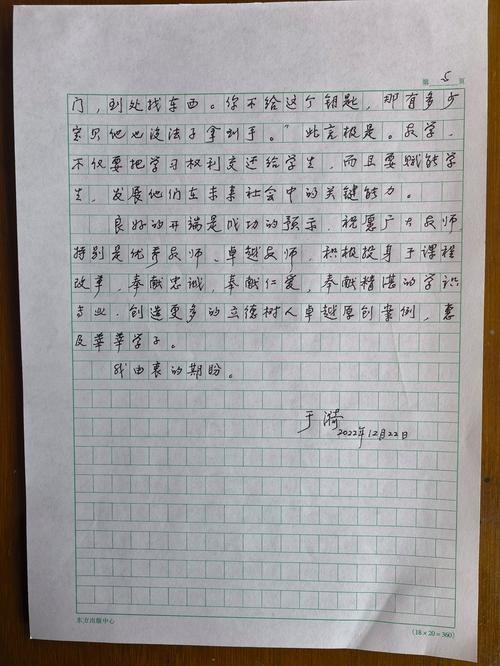 第 5 页
门,到处找东西。你不给这个钥匙,那有多少
宝贝他也没法子拿到手。”此言极是。教学,
不仅要把学习权利交还给学生,而且要赋能学
生,发展他们在未来社会中的关键能力。
良好的开端是成功的预示,祝愿广大教师,
特别是优秀教师、卓越教师,积极投身于课程
改革,奉献忠诚,奉献仁爱,奉献精湛的学识
专业,创造更多的立德树人卓越原创案例,惠
及莘莘学子。
我由衷的期盼。
于漪
2022年12月22日
东方出版中心
(18×20=360)